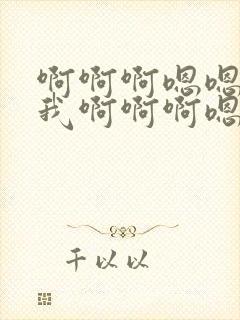 啊啊啊嗯嗯
我啊啊啊嗯
干以以